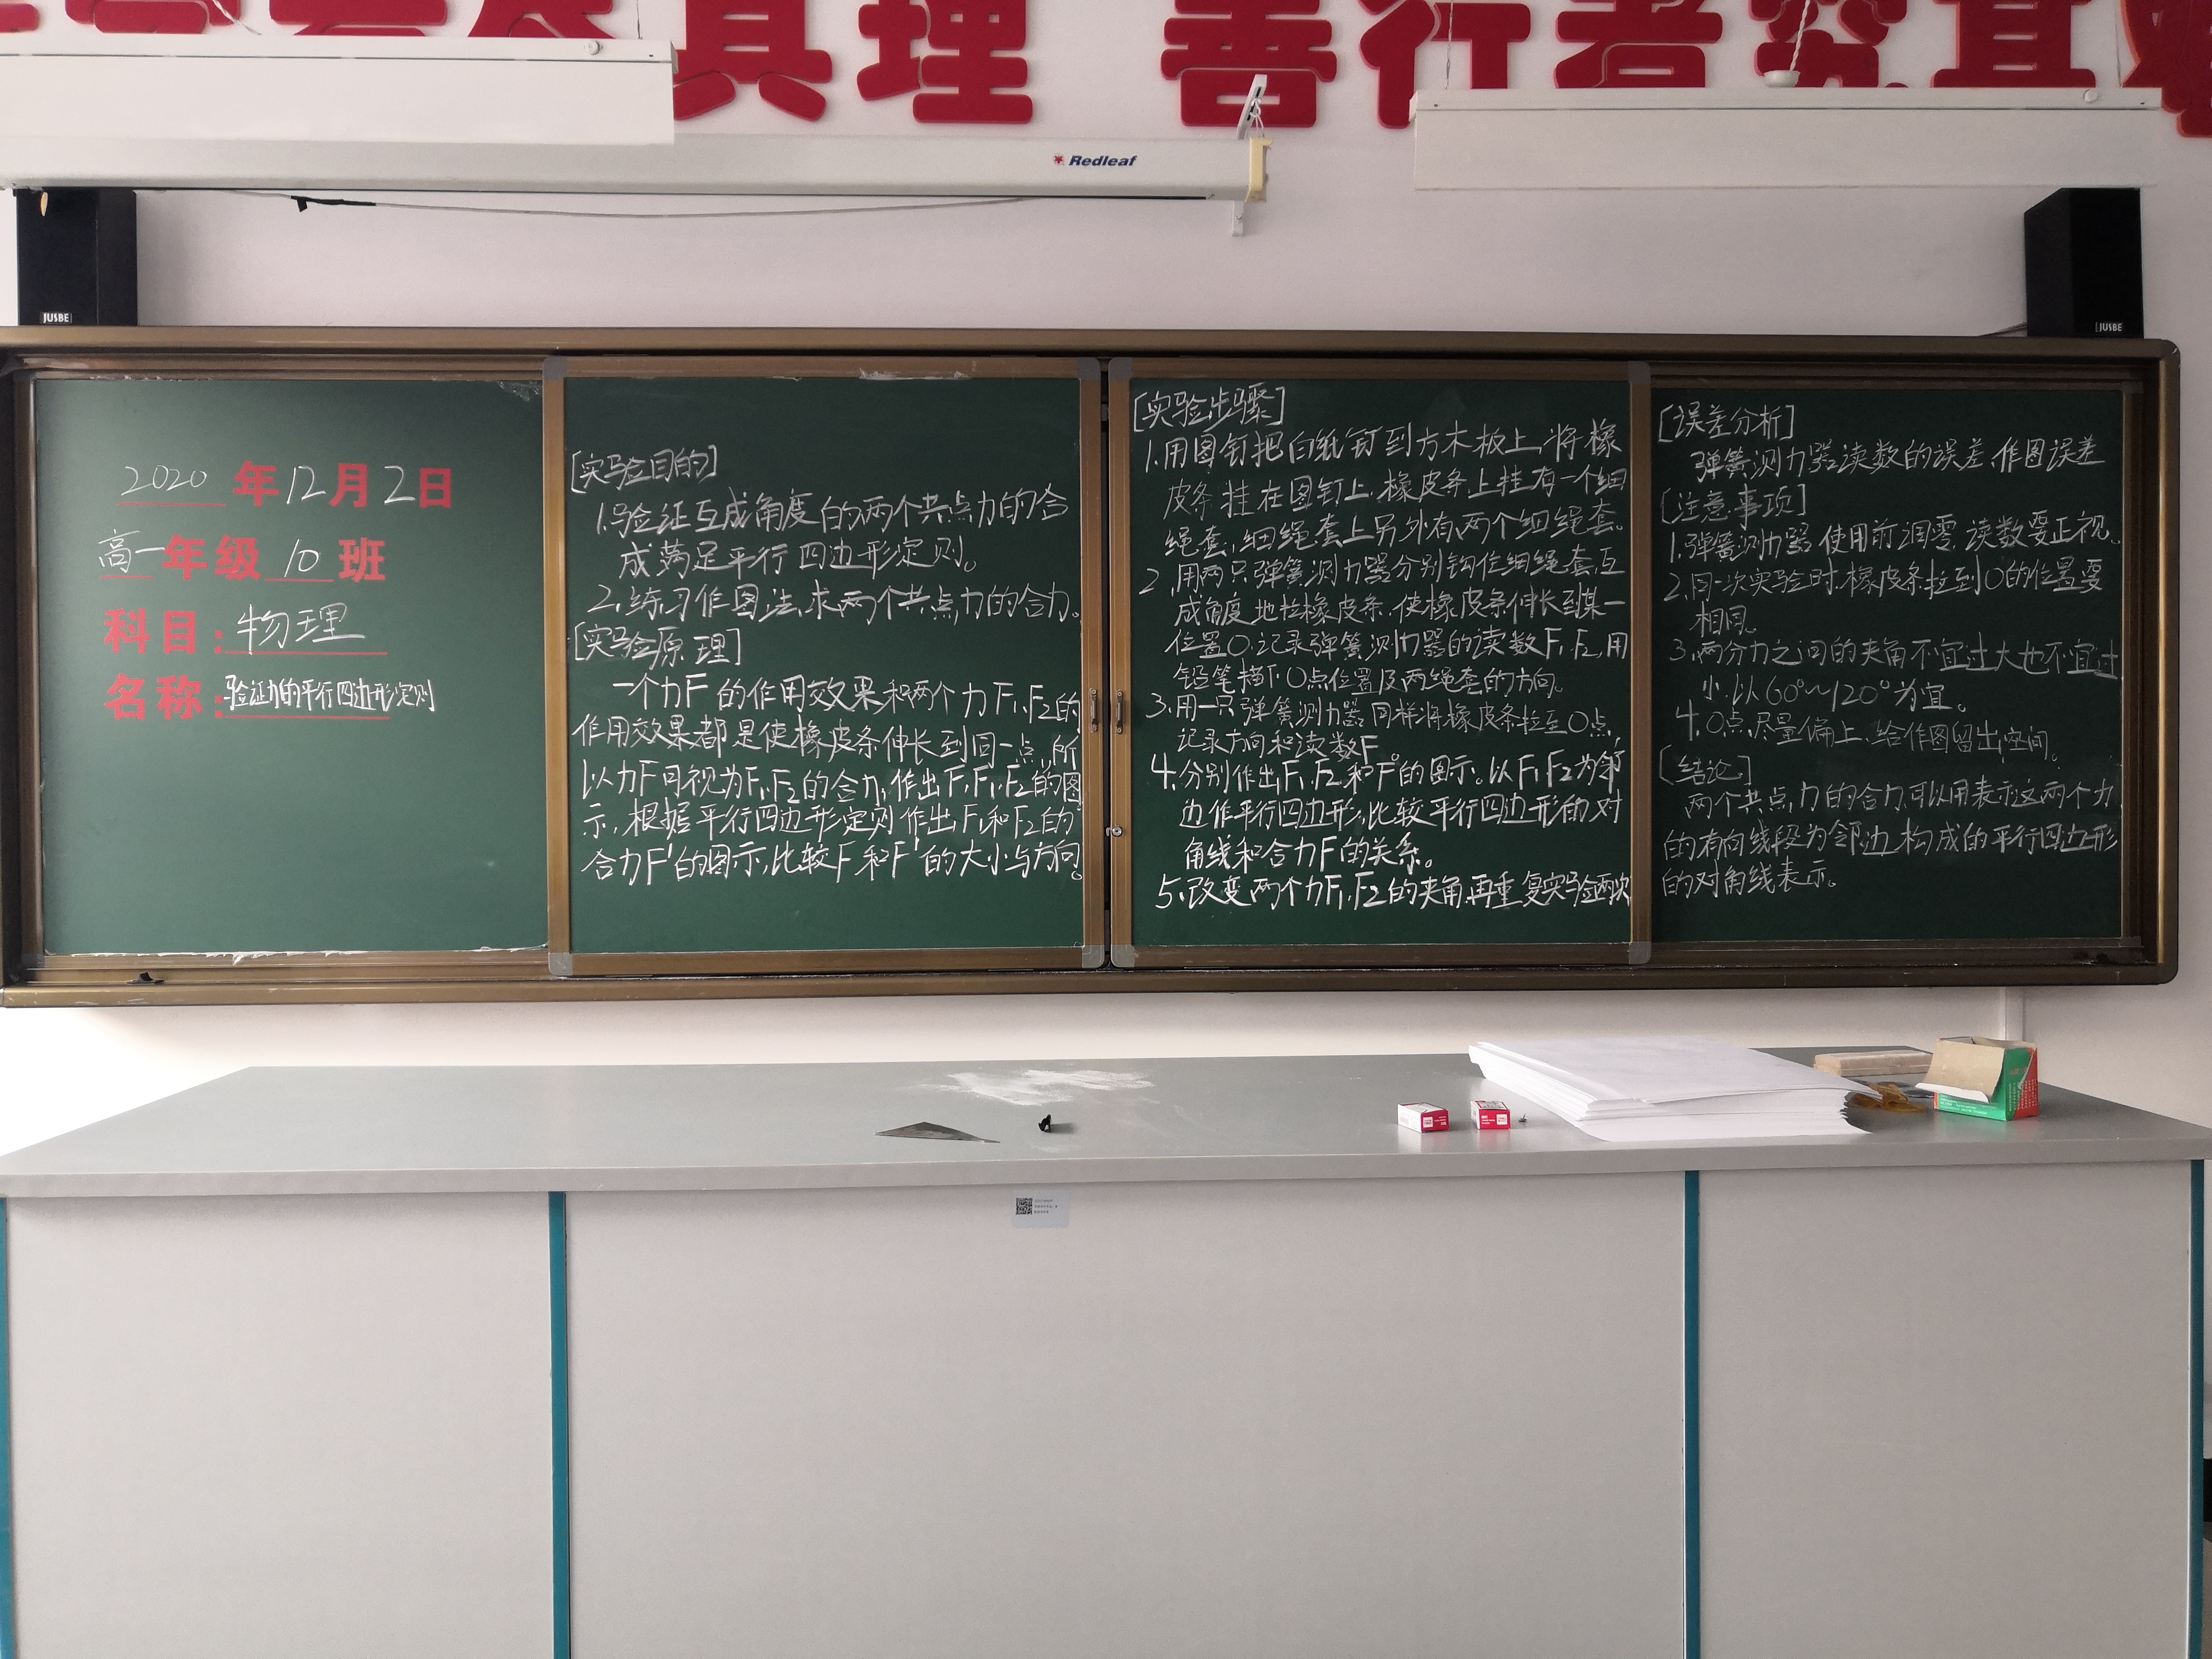 真理 善行者究其
Redleaf
JUSBE
JUSBE
2020年12月2日
高一年级10班
科目:物理
名称:验证力的平行四边形定则
[实验目的]
1.验证互成角度的两个共点力的合
成满足平行四边形定则。
2.练习作图法求两个共点力的合力。
[实验原理]
一个力F的作用效果和两个力F₁、F₂的
作用效果都是使橡皮条伸长到同一点,所
以力F可视为F₁、F₂的合力,作出F、F₁、F₂的图
示,根据平行四边形定则作出F₁和F₂的
合力F'的图示,比较F和F'的大小与方向。
[实验步骤]
1.用图钉把白纸钉到方木板上,将橡
皮条挂在图钉上,橡皮条上挂有一个细
绳套,细绳套上另外有两个细绳套。
2.用两只弹簧测力器分别钩住细绳套,互
成角度地拉橡皮条,使橡皮条伸长到某一
位置O,记录弹簧测力器的读数F₁、F₂,用
铅笔描下O点位置及两绳套的方向。
3.用一只弹簧测力器同样将橡皮条拉至O点,
记录方向和读数F。
4.分别作出F₁、F₂和F的图示。以F₁、F₂为邻
边作平行四边形,比较平行四边形的对
角线和合力F的关系。
5.改变两个力F₁、F₂的夹角,再重复实验两次
[误差分析]
弹簧测力器读数的误差,作图误差
[注意事项]
1.弹簧测力器使用前调零,读数要正视。
2.同一次实验时,橡皮条拉到O的位置要
相同。
3.两分力之间的夹角不宜过大也不宜过
小,以60°~120°为宜。
4.O点尽量偏上,给作图留出空间。
[结论]
两个共点力的合力,可以用表示这两个力
的有向线段为邻边构成的平行四边形
的对角线表示。